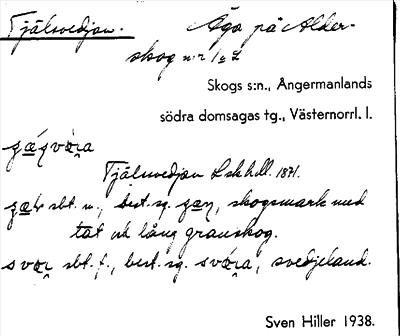 Tjälsvedjan. Äga på Alder-
skog nr 1 o 2
Skogs s:n., Ångermanlands
södra domsagas tg., Västernorrl. l.
Tjälsvedjan Lskhdl. 1871.
sbt. m., best. sg. skogsmark med
tät och lång granskog.
sbt. f., best. sg. svedjeland.
Sven Hiller 1938.